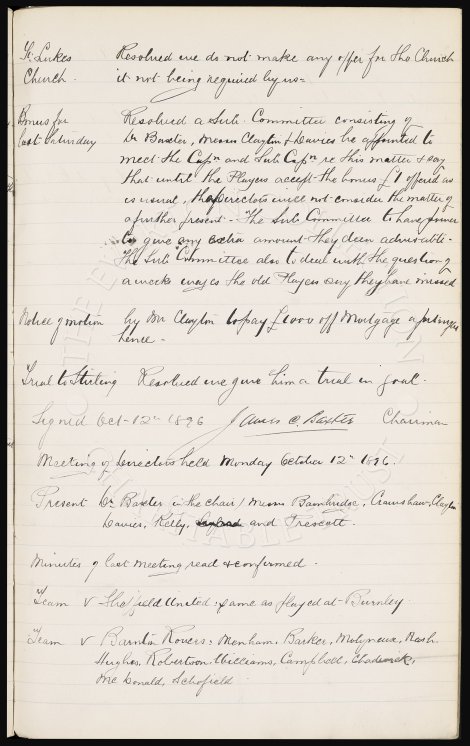 St. Lukes Church. Resolved we do not make any offer for the Church
it not being required by us=
Bonus for last Saturday Resolved a Sub. Committee consisting of
Dr Baxter, Messrs Clayton & Davies be appointed to
meet the Capn and Sub Capn re this matter & say
that until the Players accept the bonus £1 offered as
is usual, the Directors will not consider the matter of
a further present. The Sub Committee to have power
to give any extra amount they deem advisable.
The Sub Committee also to deal with the question of
a weeks wages the old Players say they have missed
Notice of motion by Mr Clayton to pay £1000 off Mortgage a fortnight
hence.
Trial to Stirling Resolved we give him a trial in goal.
Signed Oct. 12th 1896 James C. Baxter Chairman
Meeting of Directors held Monday October 12th 1896.
Present Dr Baxter in the chair / Messrs Bainbridge, Crawshaw, Clayton
Davies, Kelly, and Prescott.
Minutes of last meeting read & confirmed.
Team v Sheffield United: same as played at Burnley
Team v Barnton Rovers: Menham, Barker, Molyneux, Nash
Hughes, Robertson, Williams, Campbell, Chadwick,
McDonald, Schofield.